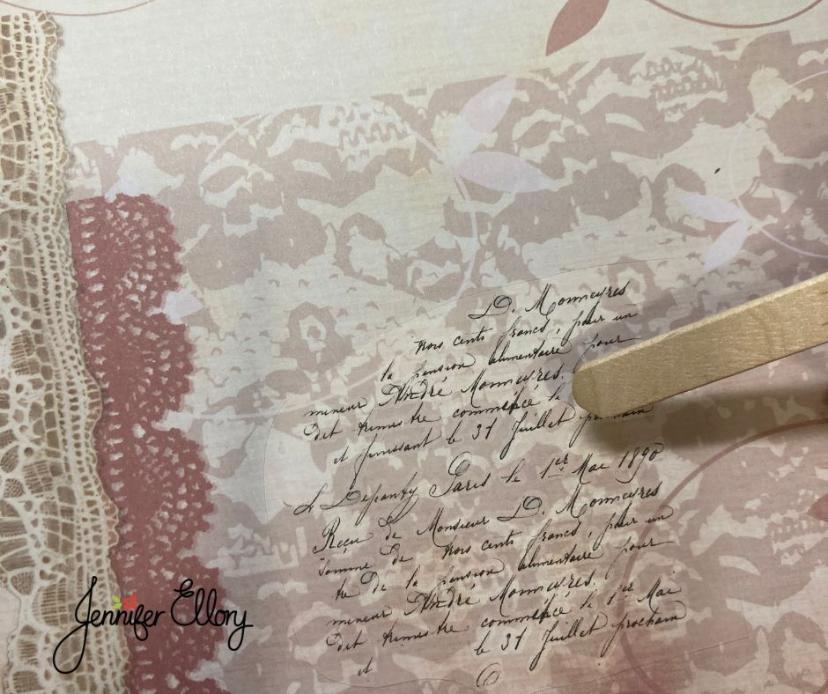 D. Monneyres
trois cents francs, pour un
la pension alimentaire pour
mineur André Monneyres.
Dit trimestre commencé le
et finissant le 31 Juillet prochain
Paris le 1er Mai 1890
Reçu de Monsieur D. Monneyres
somme de trois cents francs, pour un
tre de la pension alimentaire pour
mineur André Monneyres.
Dit trimestre commencé le 1er Mai
et le 31 Juillet prochain
Jennifer Ellory